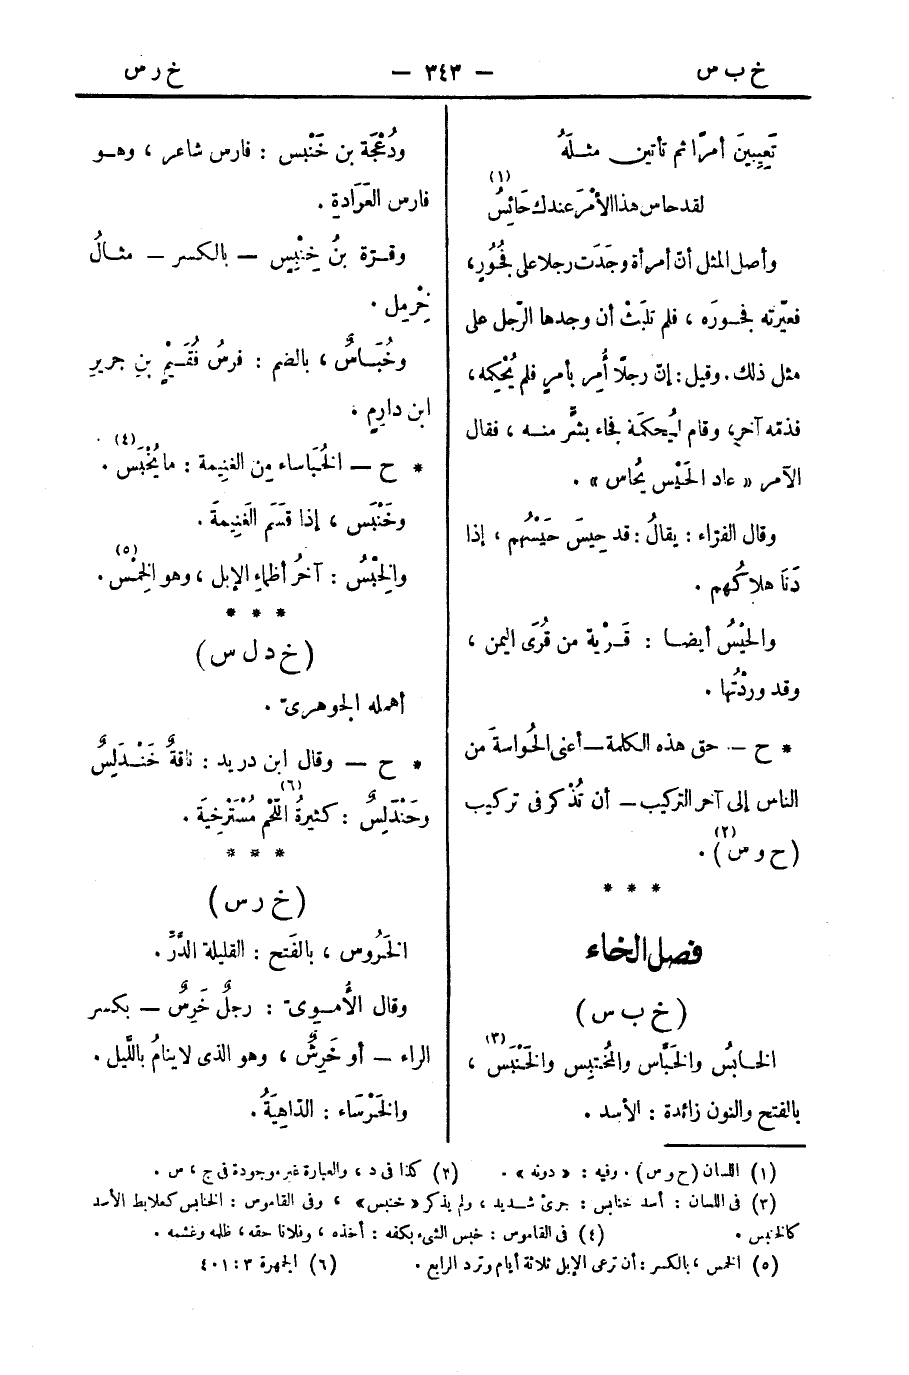 خ ب س — ٣٤٣ — خ ر س
تَعِيبِينَ أمرًا ثم تأتين مثلَهُ
لقد حاس هذا الأمْرَ عندك حَائِسُ (١)
وأصل المثل أن أمرأة وجَدَت رجلا على فُجُورٍ،
فعيّرته فجورَه ، فلم تلبَثْ أن وجدها الرّجل على
مثل ذلك. وقيل: إنّ رجلًا أُمِر بأمرٍ فلم يُحْكِمه،
فذمّه آخر، وقام ليُحكمَهُ فجاء بشرٍّ منه ، فقال
الآمر « عاد الحَيْس يُحاس » .
وقال الفرّاء : يقالُ : قد حِيسَ حَيْسُهم ، إذا
دَنَا هلاكُهم .
والحَيْسُ أيضا : قَرْية من قُرَى اليمن ،
وقد وردْتُها .
* ح — حق هذه الكلمة — أعنى الحُواسةَ من
الناس إلى آخر التركيب — أن تُذْكر فى تركيب
(ح و س) (٢) .
* * *
فصل الخاء
(خ ب س)
الخابسُ والخَبَّاس والمُختبِس والخَنْبَس (٣) ،
بالفتح والنون زائدة : الأسد .
ودُعْجَة بن خَنْبس : فارس شاعر ، وهو
فارس العَرَادةِ .
وقرّة بنُ خِنْبِس — بالكسر — مثالُ
خِرْمِل .
وخُبَاسٌ ، بالضم : فرسُ فُقَيْمِ بنِ جريرِ
ابن دارِمٍ .
* ح — الخُبَاساء مِن الغنِيمة : ما يُخْبَس (٤) .
وخَنْبَس ، إذا قسَم الغَنِيمةَ .
والخِبْسُ : آخرُ أظماءِ الإبل ، وهو الخِمْس (٥) .
* * *
(خ د ل س)
أهمله الجوهرىّ .
* ح — وقال ابن دريد : ناقةٌ خَنْدَلِسٌ
وحَنْدَلِسٌ : كثيرةُ اللّحْمِ (٦) مُسْتَرْخِيَة .
* * *
(خ ر س)
الخَرُوس ، بالفَتح : القليلة الدَّرِّ .
وقال الأُمويّ : رجلٌ خَرِسٌ — بكسر
الراء — أو خَرِشٌ ، وهو الذى لا ينامُ باللَّيل .
والخَرْسَاء : الدّاهِيَةُ .
(١) اللسان (ح و س) . وفيه : « دونه » . (٢) كذا فى د ، والعبارة غير موجودة فى ج ، س .
(٣) فى اللسان : أسد خنابس : جرئ شديد ، ولم يذكر « خنبس » ، وفى القاموس : الخنابس كعلابط الأسد
كالخنبس . (٤) فى القاموس : خبس الشىء بكفه : أخذه ، وفلانا حقه ، ظلمه وغشمه .
(٥) الخمس ، بالكسر : أن ترعى الإبل ثلاثة أيام وترد الرابع . (٦) الجهرة ٣ : ٤٠١